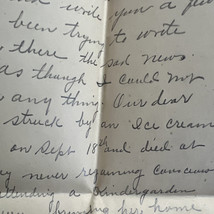 write you a few
been trying to write
there the sad news
as though I could not
any thing. Our dear
struck by an Ice cream
on Sept 18th and died at
never regaining conscious
attending a Kindergarden
her home